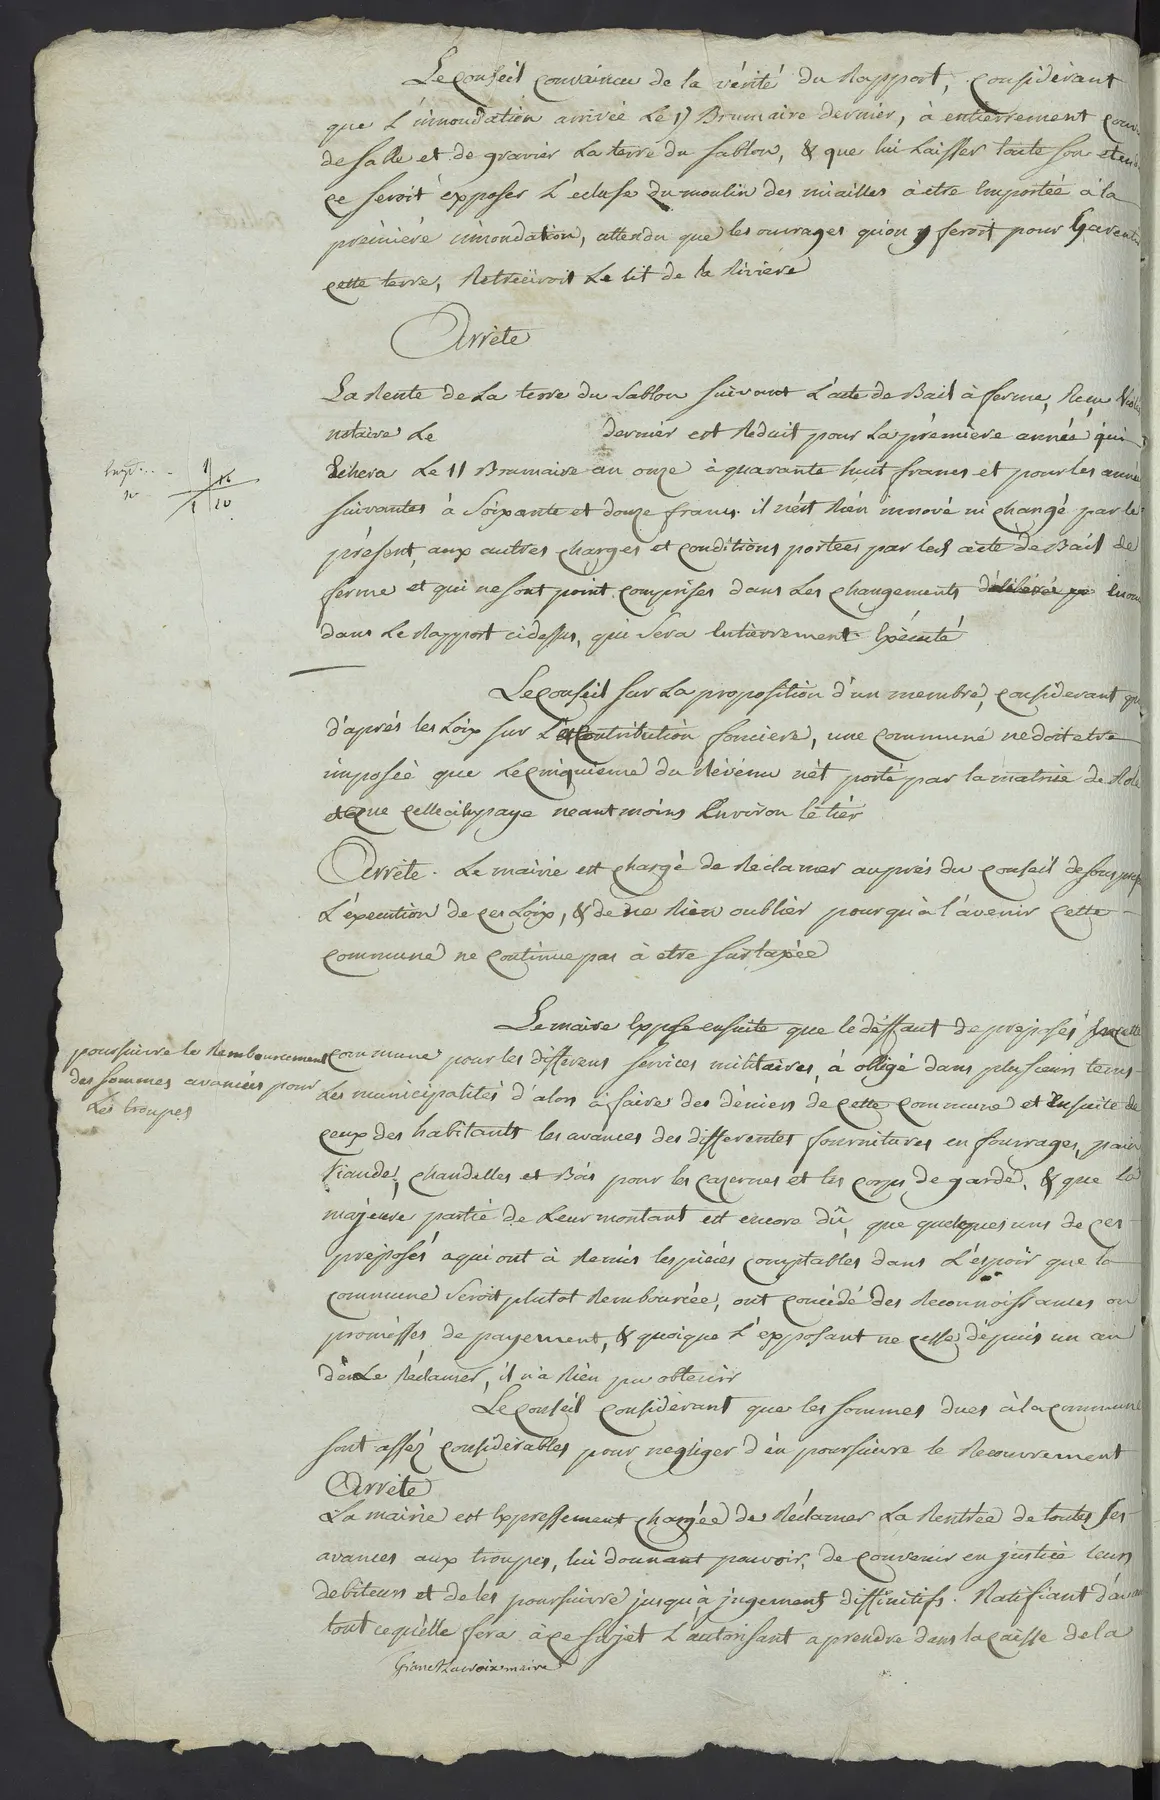 Le Conseil convaincu de la vérité du Rapport, considérant
que L'innondation arrivée Le 17 Brumaire dernier, à entierrement
de salle et de gravier La terre du sablon, & que lui Laisser toute son
ce seroit exposer L'ecluse du moulin des miailles à etre Emportée à la
première innondation, attendu que les ouvrages qu'on y feroit pour Garentir
cette terre, Retreciroit Le lit de la Riviere
Arrète
La Rente de La terre du Sablon suivant L'acte de Bail à ferme, Reçu
notaire Le dernier est Reduit pour La première année qui
Echera Le 11 Brumaire an onze à quarante huit francs et pour les année
suivantes à Soixante et douze francs. il n'est Rien innové ni changé par le
présent, aux autres charges et conditions portees par led. acte de Bail de
ferme et qui ne sont point comprises dans Les changements
dans Le Rapport cidessus, qui sera Entierrement Exécuté
Le Conseil sur La proposition d'un membre, considerant que
d'aprés les Loix sur La Contribution fonciere, une commune ne doit etre
imposéé que Le cinquieme du Révénu nèt porté par la matrice de Role
et que celle ci en paye neant moins Environ le tier
Arrète. Le mairie est chargé de Réclamer auprés du conseil de sous
L'éxecution de ces Loix, & de ne Rien oublier pour qu'à l'avenir cette
commune ne continue pas à etre surtaxée
Le maire Expose ensuite que le déffaut de préposés dans cette
poursuivre le Remboursement
des sommes avancées pour
Les troupes
commune pour les differens services militaires, à obligé dans plusieurs tems
Les municipalités d'alors à faire des déniers de cette commune et Ensuite de
ceux des habitants les avances des differentes fournitures en fourrages, pain
Viande, chandelles et Bois pour les casernes et les corps de garde, & que la
majeure partie de Leur montant est encore dû, que quelques uns de ces
préposés a qui ont à Remis les pièces comptables dans L'éspoir que la
commune Seroit plutot Rembourcée, ont concédé des Reconnoissances ou
promèsses de payement, & quoique L'exposant ne cesse dépuis un an
de Le Réclamer, il n'a Rien pu obtenir
Le Conseil considérant que les sommes dues à la commune
sont assez considérables pour negliger d'en poursuivre le Recouvrement
Arrète
La mairie est Expressement chargée de Réclamer La Rentrée de toutes ses
avances aux troupes, lui donnant pouvoir, de convenir en justice leurs
debiteurs et de les poursuivre jusqu'à jugement diffinitifs. Ratifiant d'avance
tout ce qu'elle fera à ce sujet L'autorisant a prendre dans la caisse de la
Lacroix maire